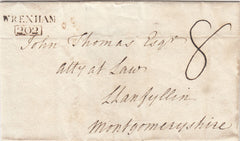 WREXHAM
202
8
John Thomas Esqr
atty at Law
Llanfyllin
Montgomeryshire